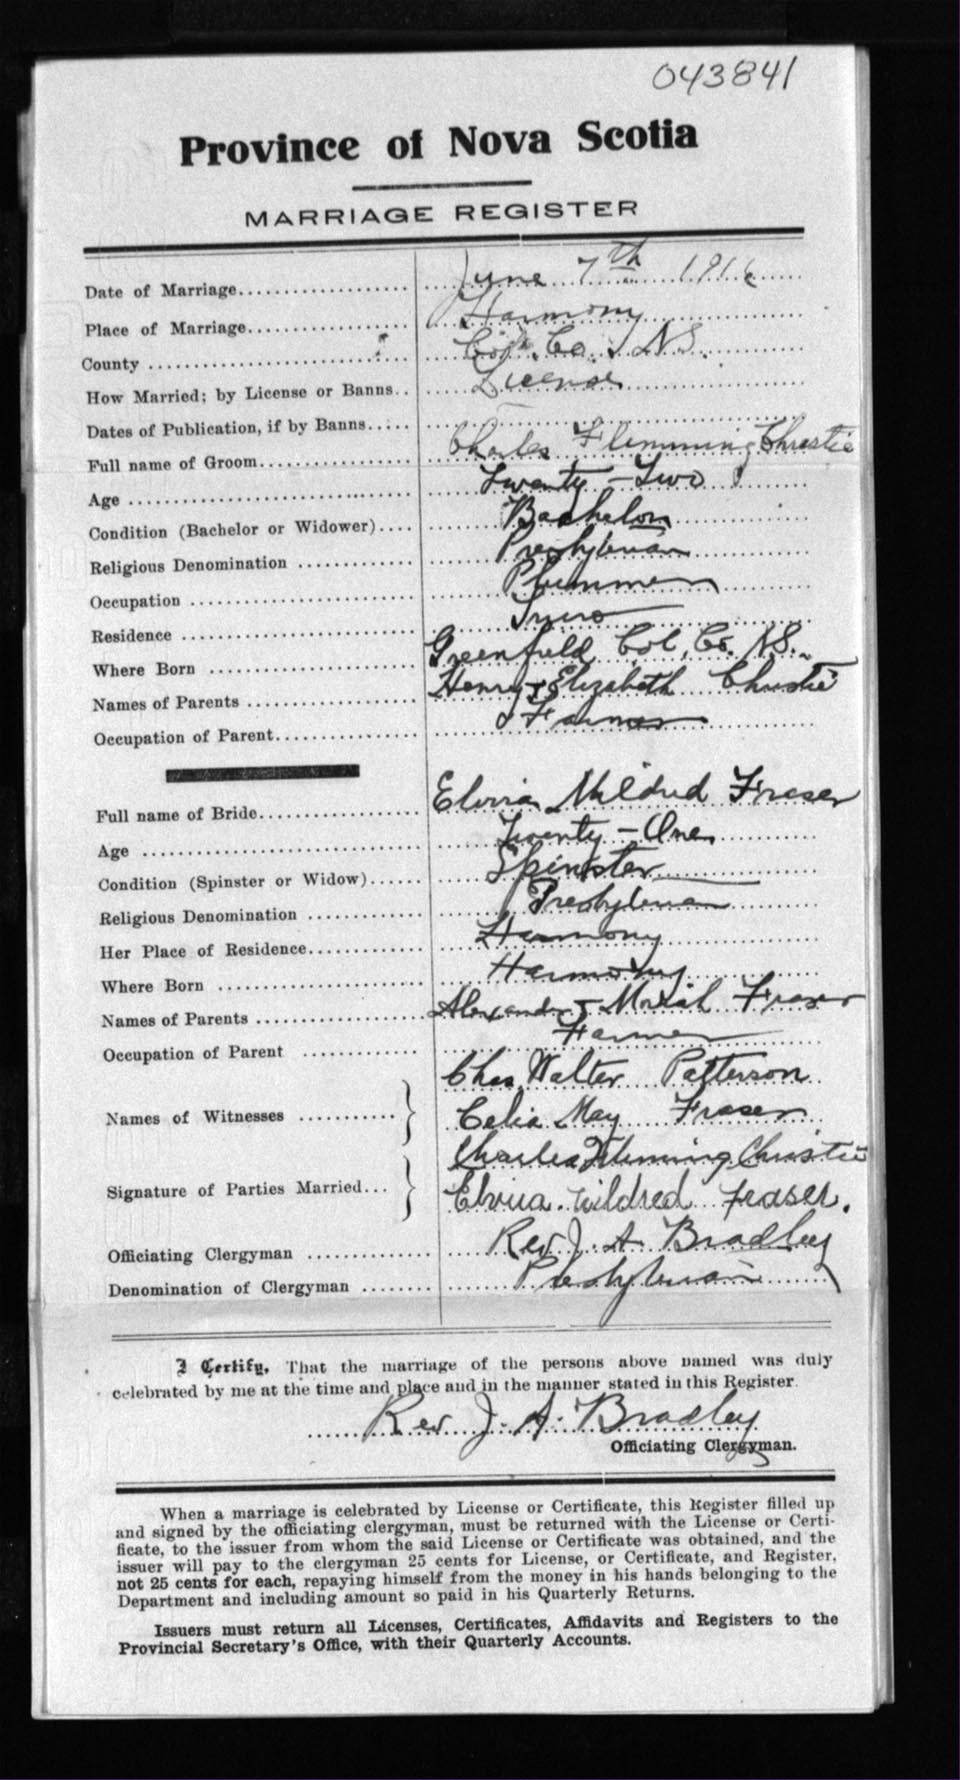 043841
Province of Nova Scotia
MARRIAGE REGISTER
Date of Marriage.................... June 7th 1916
Place of Marriage................... Harmony
County .............................. Col. Co. NS.
How Married; by License or Banns.. License
Dates of Publication, if by Banns.....
Full name of Groom.................. Charles Flemming Christie
Age ................................. Twenty-Two
Condition (Bachelor or Widower).... Bachelor
Religious Denomination ............. Presbyterian
Occupation .......................... Plummer
Residence ........................... Truro
Where Born .......................... Greenfield Col. Co. NS.
Names of Parents .................... Henry & Elizabeth Christie
Occupation of Parent................ Farmer
Full name of Bride.................. Elvira Mildred Fraser
Age ................................. Twenty-One
Condition (Spinster or Widow)...... Spinster
Religious Denomination ............. Presbyterian
Her Place of Residence.............. Harmony
Where Born .......................... Harmony
Names of Parents .................... Alexander & Fraser
Occupation of Parent ............... Farmer
Names of Witnesses ........... } Chas. Walter Patterson
Celia May Fraser
Signature of Parties Married... } Charles Flemming Christie
Elvira. Mildred Fraser.
Officiating Clergyman ............... Rev. J. A. Bradley
Denomination of Clergyman ........ Presbyterian
I Certify, That the marriage of the persons above named was duly
celebrated by me at the time and place and in the manner stated in this Register.
Rev. J. A. Bradley
Officiating Clergyman.
When a marriage is celebrated by License or Certificate, this Register filled up
and signed by the officiating clergyman, must be returned with the License or Certi-
ficate, to the issuer from whom the said License or Certificate was obtained, and the
issuer will pay to the clergyman 25 cents for License, or Certificate, and Register,
not 25 cents for each, repaying himself from the money in his hands belonging to the
Department and including amount so paid in his Quarterly Returns.
Issuers must return all Licenses, Certificates, Affidavits and Registers to the
Provincial Secretary's Office, with their Quarterly Accounts.